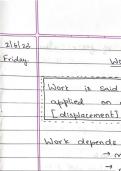 2/5/23
Friday
Wo
Work is said
applied on
[displacement]
Work depends
→
→